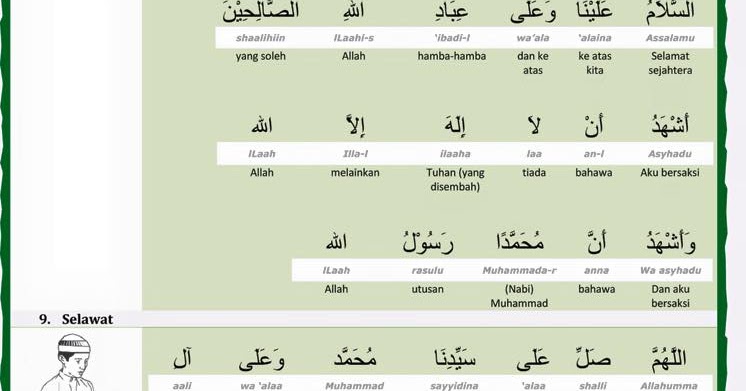 السَّلاَمُ عَلَيْنَا وَعَلَى عِبَادِ اللهِ الصَّالِحِيْنَ
shaalihiin lLaahi-s 'ibadi-l wa'ala 'alaina Assalamu
yang soleh Allah hamba-hamba dan ke atas ke atas kita Selamat sejahtera
أَشْهَدُ أَنْ لاَ إِلَهَ إِلاَّ الله
lLaah Illa-l ilaaha laa an-l Asyhadu
Allah melainkan Tuhan (yang disembah) tiada bahawa Aku bersaksi
وَأَشْهَدُ أَنَّ مُحَمَّدًا رَسُوْلُ الله
lLaah rasulu Muhammada-r anna Wa asyhadu
Allah utusan (Nabi) Muhammad bahawa Dan aku bersaksi
9. Selawat
اللَّهُمَّ صَلِّ عَلَى سَيِّدِنَا مُحَمَّد وَعَلَى آلِ
aali wa 'alaa Muhammad sayyidina 'alaa shalli Allahumma